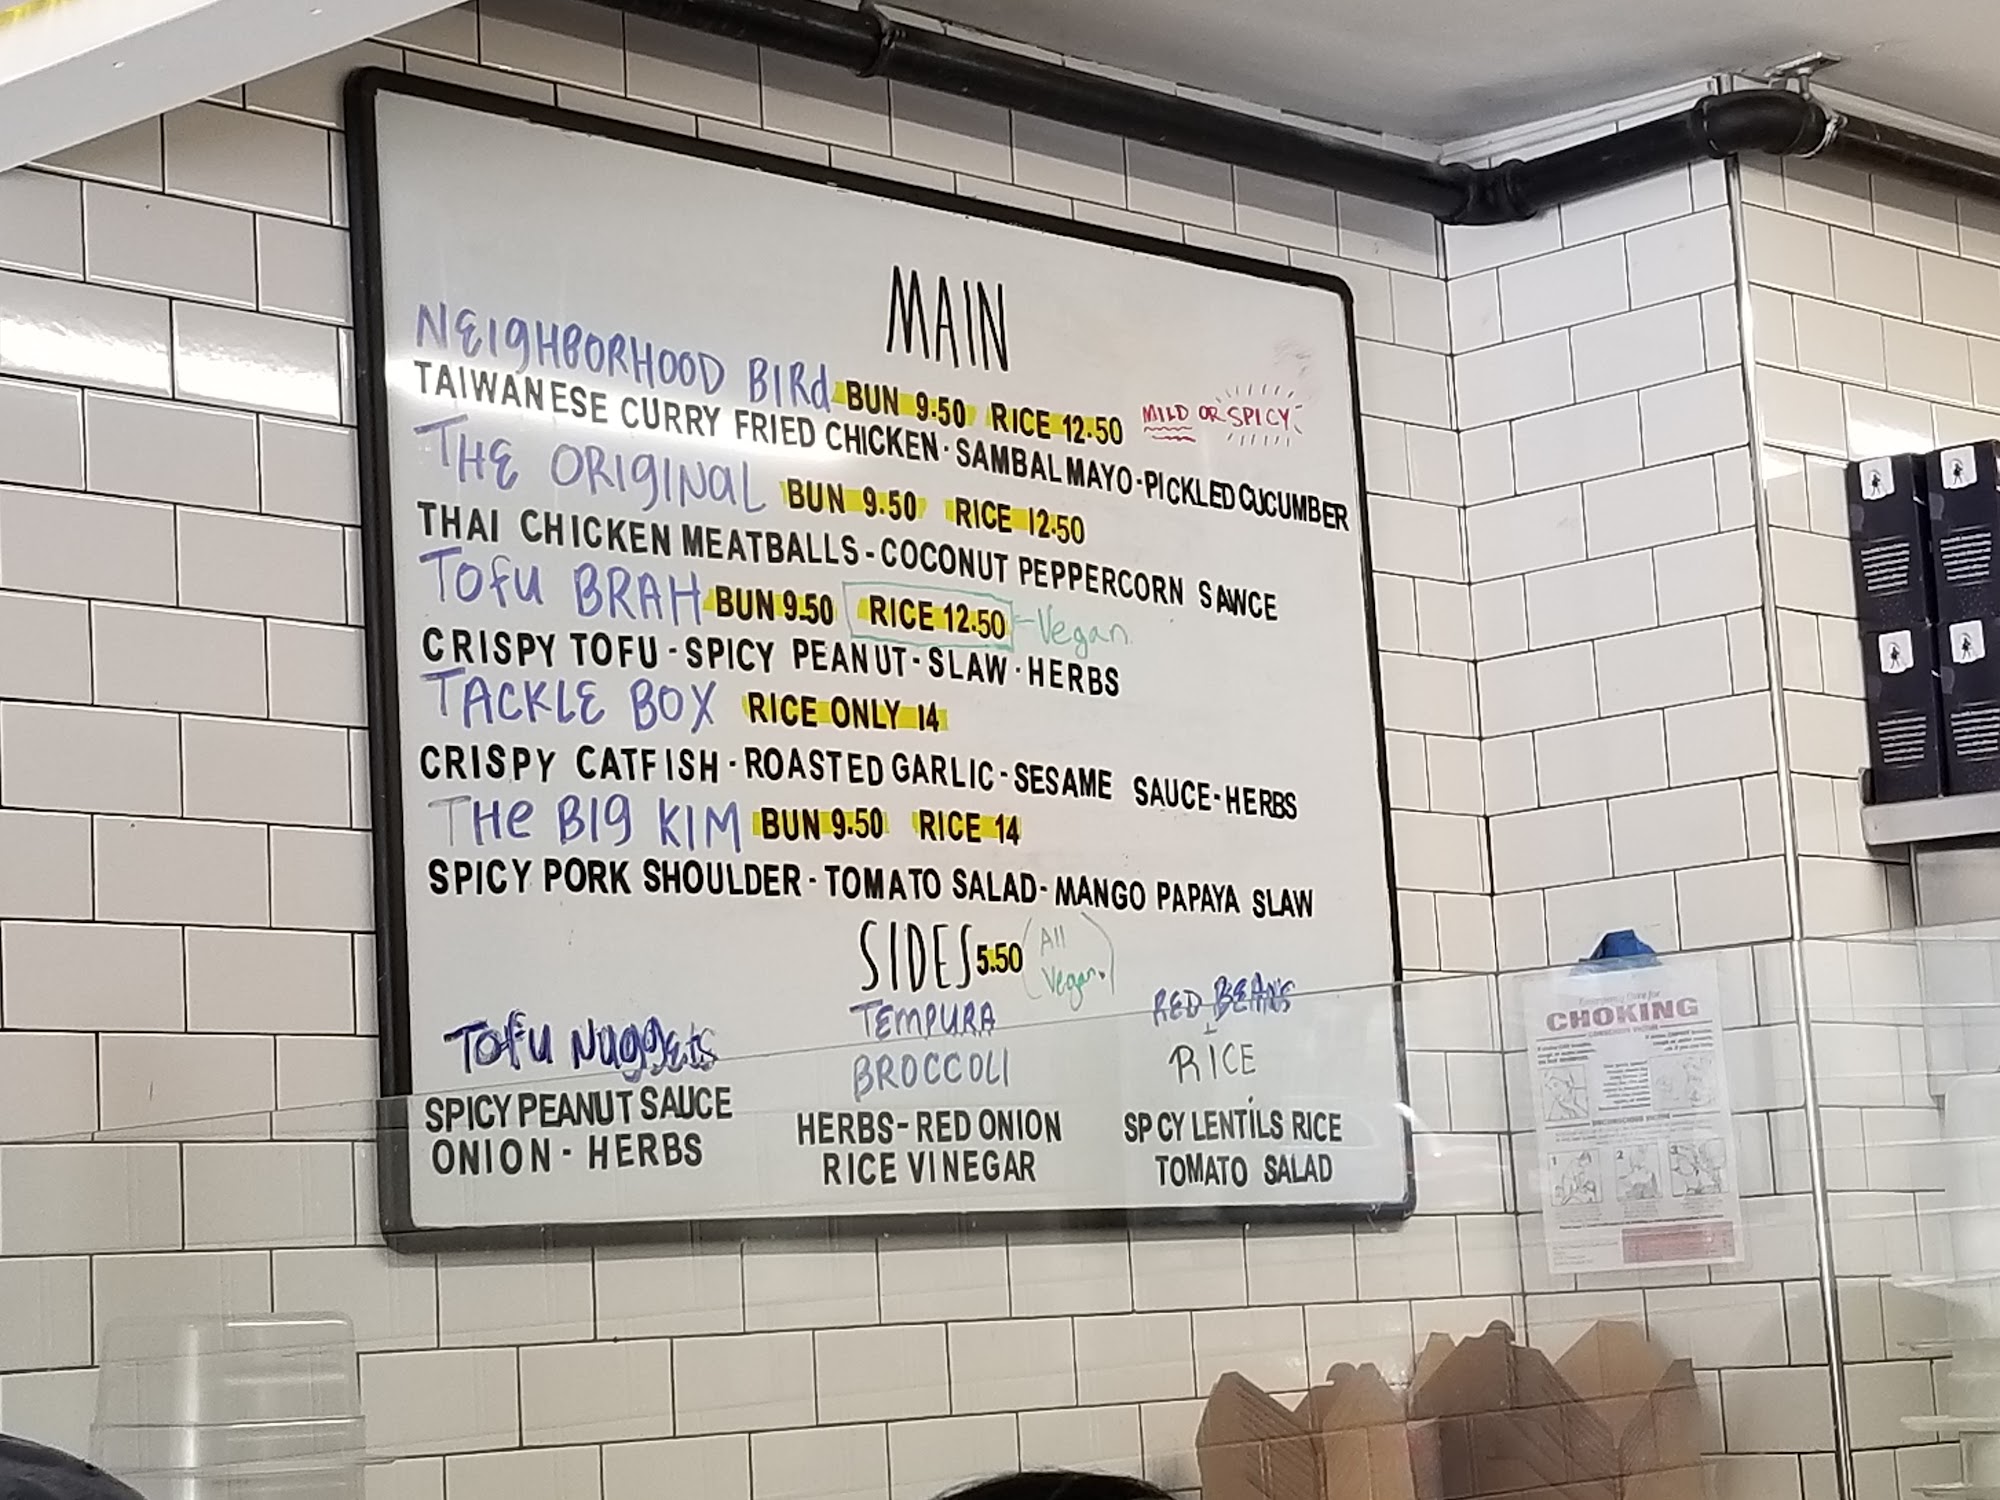 MAIN
NEIGHBORHOOD BIRd BUN 9.50 RICE 12.50 MILD OR SPICY
TAIWANESE CURRY FRIED CHICKEN · SAMBAL MAYO - PICKLED CUCUMBER
THE ORIGINAL BUN 9.50 RICE 12.50
THAI CHICKEN MEATBALLS - COCONUT PEPPERCORN SAWCE
TOfu BRAH BUN 9.50 RICE 12.50 - Vegan
CRISPY TOFU - SPICY PEANUT - SLAW · HERBS
TACKLE BOX RICE ONLY 14
CRISPY CATFISH · ROASTED GARLIC - SESAME SAUCE - HERBS
THe BIg KIM BUN 9.50 RICE 14
SPICY PORK SHOULDER - TOMATO SALAD - MANGO PAPAYA SLAW
SIDES 5.50 (All Vegan.)
Tofu Nuggets
SPICY PEANUT SAUCE
ONION - HERBS
TEMPURA
BROCCOLI
HERBS - RED ONION
RICE VINEGAR
RED BEANS
+
RICE
SP CY LENTiLS RICE
TOMATO SALAD
CHOKING
1 2 3